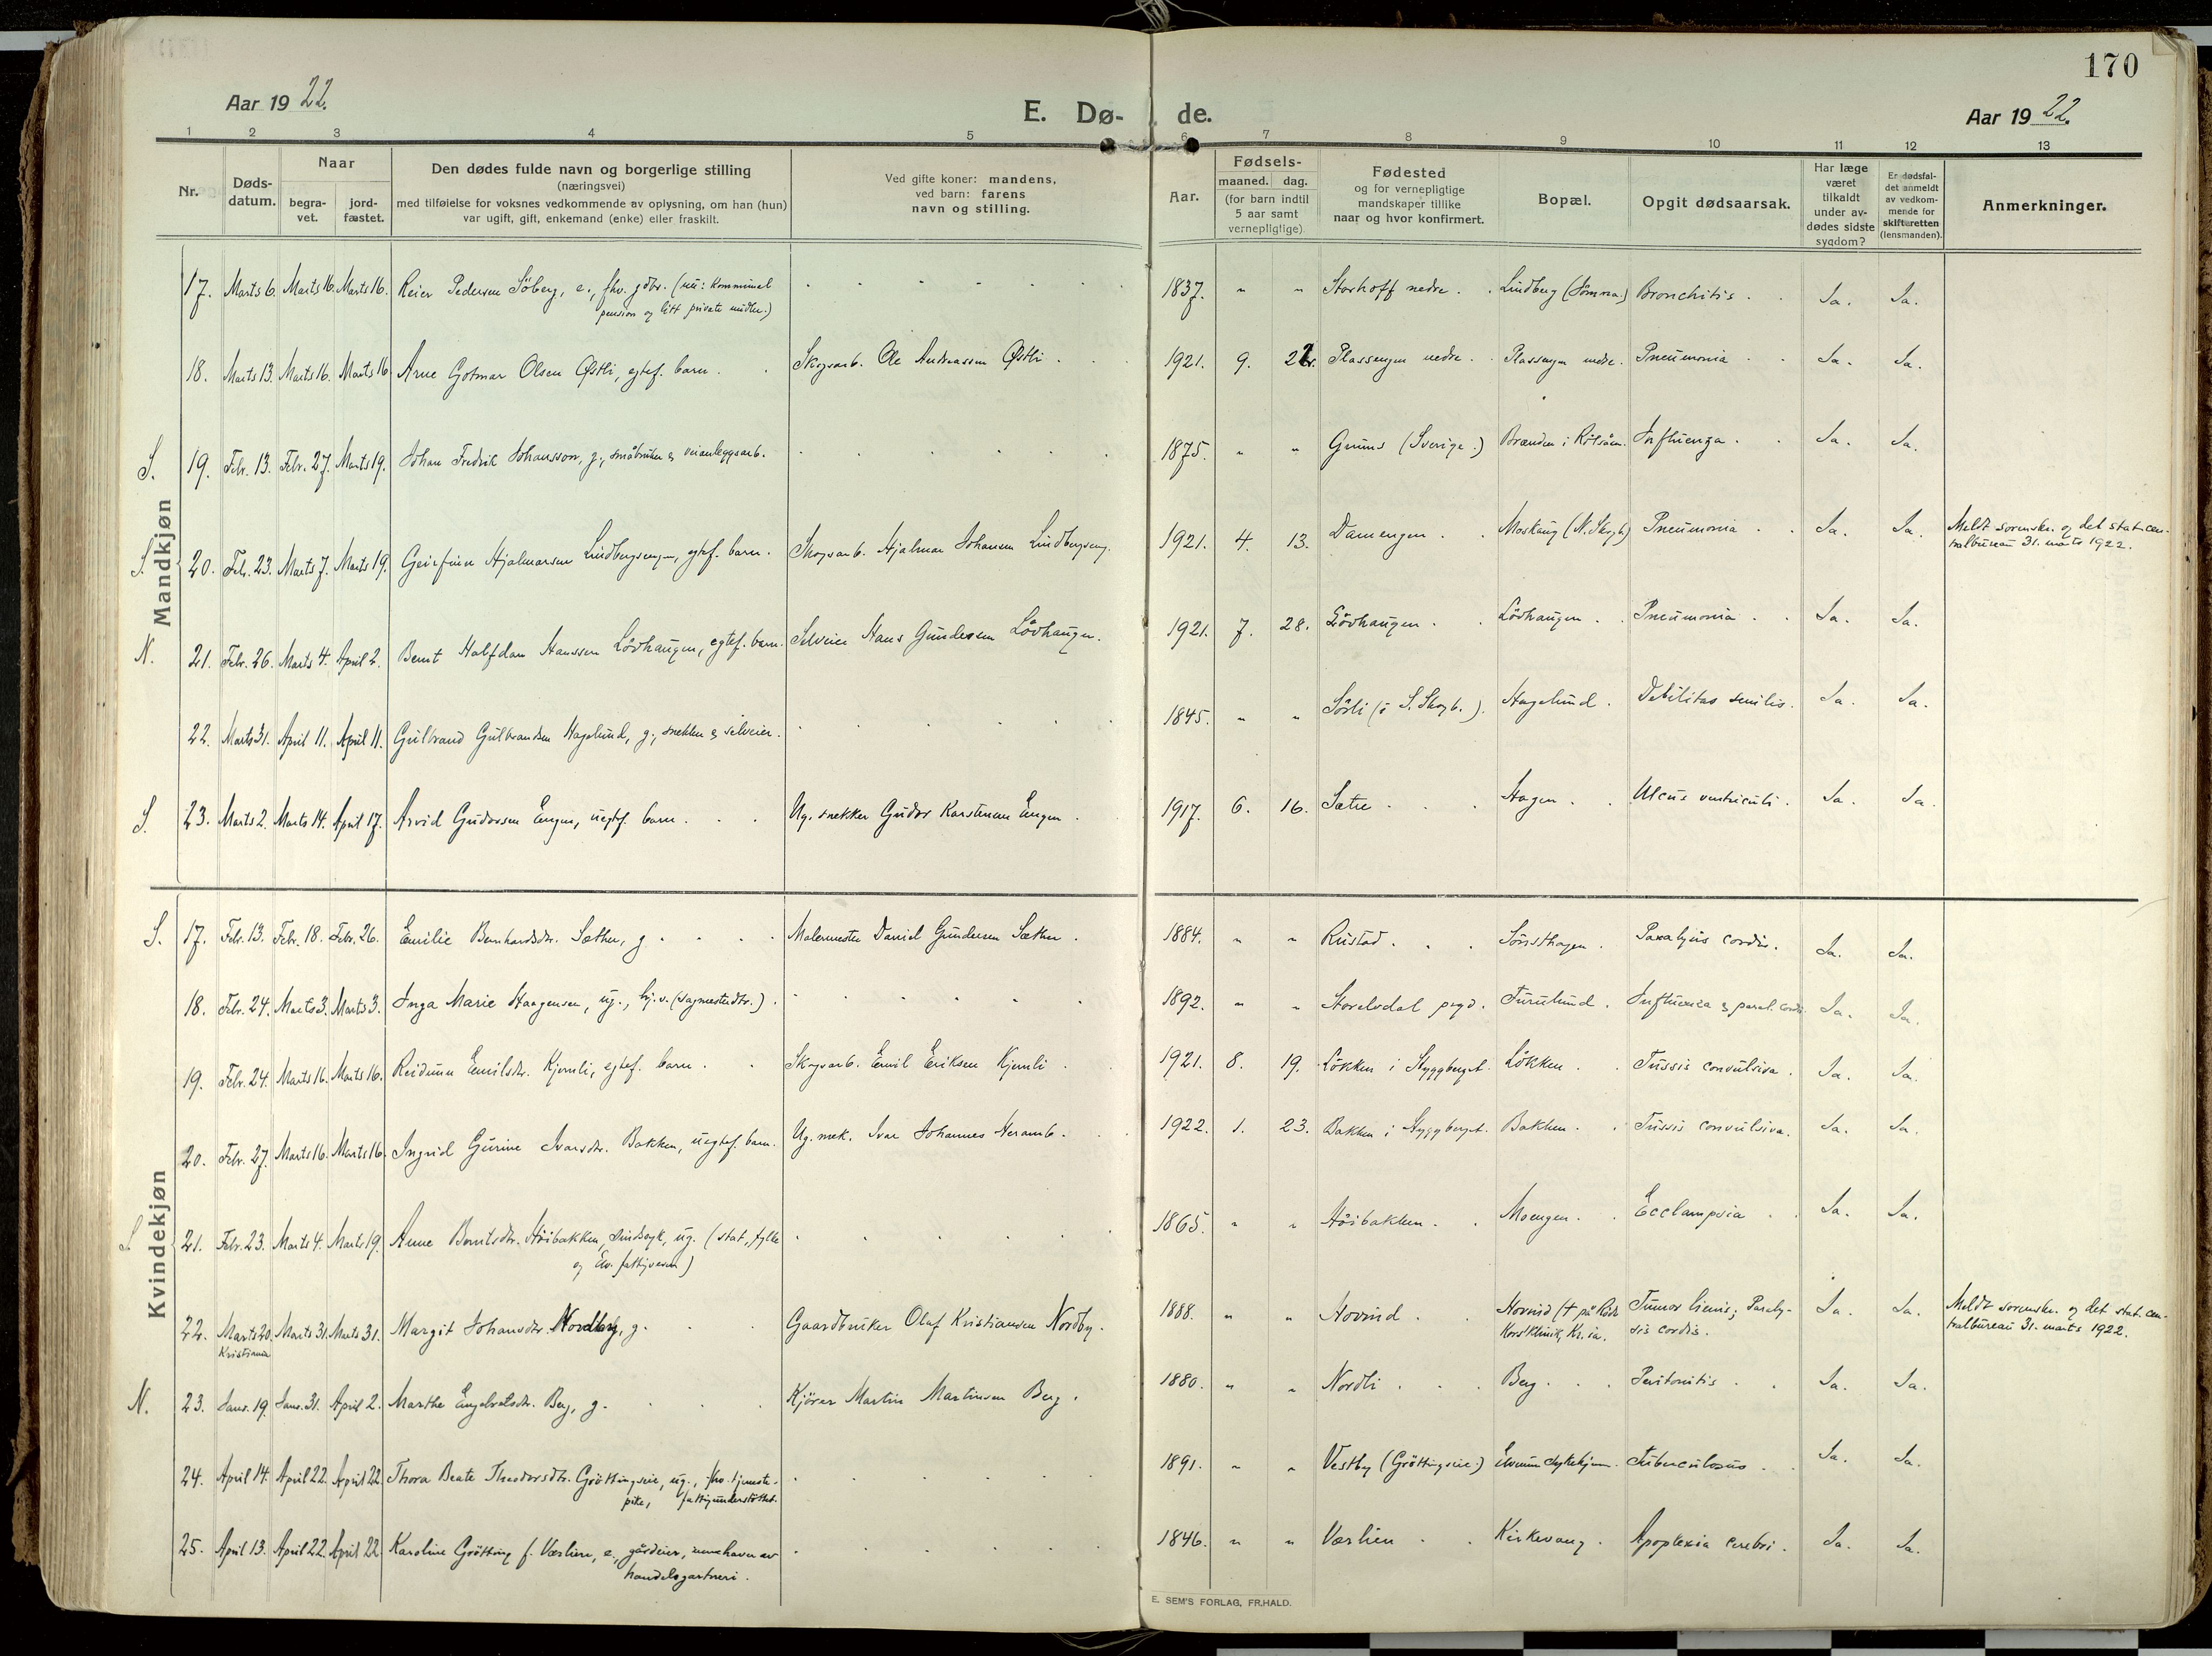 170
Aar 19 22.
E. Dø- de.
Aar 19 22.
1 2 3 4 5 6 7 8 9 10 11 12 13
Nr.
Døds-
datum.
Naar
begra-
vet.
jord-
fæstet.
Den dødes fulde navn og borgerlige stilling
(næringsvei)
med tilføielse for voksnes vedkommende av oplysning, om han (hun)
var ugift, gift, enkemand (enke) eller fraskilt.
Ved gifte koner: mandens,
ved barn: farens
navn og stilling.
Aar.
Fødsels-
maaned. dag.
(for barn indtil
5 aar samt
vernepligtige)
Fødested
og for vernepligtige
mandskaper tillike
naar og hvor konfirmert.
Bopæl.
Opgit dødsaarsak.
Har læge
været
tilkaldt
under av-
dødes sidste
sygdom?
Er dødsfal-
det anmeldt
av vedkom-
mende for
skifteretten
(lensmanden).
Anmerkninger.
Mandkjøn
17. Marts 6. Marts 16. Marts 16. Reier Pedersen Söberg, e., fhv. gdbr. (nu: kommunal
pension og litt private midler.)
1837. " " Storhoff nedre. Lindberg (Sömna.) Bronchitis. Ja. Ja.
18. Marts 13. Marts 16. Marts 16 Arne Gotmar Olsen Østli, egtef. barn. Skogsarb. Ole Andreassen Østli. 1921. 9. Plassengen nedre. Plassengen nedre. Pneumonia Ja. Ja.
S. 19. Febr. 13. Febr. 27. Marts 19. Johan Fredrik Johansson, g., småbruker & veianleggsarb. 1875. " " Grums (Sverige.) Brænden i Influenza. Ja. Ja.
S. 20. Feb. 23. Marts 7. Marts 19. Geirfinn Hjalmarsen Lindbergsengen, egtef. barn. Skogsarb. Hjalmar Johansen Lindbergseng. 1921. 4. 13. Damengen. Moskaug (N. Skogb.) Pneumonia Ja. Ja. Meldt sorenskr. og det stat. cen-
tralbureau 31. marts 1922.
N. 21. Febr. 26. Marts 4. April 2. Bernt Halfdan Hanssen Lövhaugen, egtef. barn. Selveier Hans Gundersen Lövhaugen. 1921. 7. 28. Lövhaugen. Lövhaugen. Pneumonia Ja. Ja.
22. Marts 31. April 11. April 11. Gulbrand Gulbrandsen Hagelund, g., snekker & selveier. 1845. " " Sörli (i S. Skogb.). Hagelund. Debilitas senilis. Ja. Ja.
S. 23. Marts 2. Marts 14. April 17. Arvid Gudorsen Engen, uegtef. barn. Ug. snekker Gudor Karstensen Engen. 1917. 6. 16. Sætre. Hagen. Ulcus ventriculi. Ja. Ja.
Kvindekjøn
S. 17. Febr. 13. Febr. 18. Febr. 26. Emilie Bernhardsdtr. Sæther, g. Malermester Daniel Gundersen Sæther. 1884. " " Rustad. Paralysis cordis. Ja. Ja.
18. Febr. 24. Marts 3. Marts 3. Inga Marie Haagensen, ug., hj.v. (sagmesterdtr.). 1892. " " Storelvdal prgd. Furulund. Influenza & paral. cordis. Ja. Ja.
19. Febr. 24. Marts 16. Marts 16. Reidunn Emilsdtr. Kjernli, egtef. barn. Skogsarb. Emil Eriksen Kjernli 1921. 8. 19. Lökken i Styggberget. Lökken. Tussis convulsiva. Ja. Ja.
20. Febr. 27. Marts 16. Marts 16. Ingrid Gurine Ivarsdtr. Bakken, uegtef. barn. Ug. mek. Ivar Johannes Heramb. 1922. 1. 23. Bakken i Styggberget. Bakken. Tussis convulsiva. Ja. Ja.
S. 21. Febr. 23. Marts 4. Marts 19. Anne Berntsdtr. Höibakken, sindssyk, ug. (stat, fylke
og Elv. fattigvesen)
1865. " " Höibakken. Moengen. Ecclampsia Ja. Ja.
22. Marts 20. Marts 31. Marts 31. Margit Johansdtr. Nordby, g. Gaardbruker Olaf Kristiansen Nordby. 1888. " " Hovind. Hovind († på Röde Tumor lienis; Paraly- Ja. Ja. Meldt sorenskr. og det stat. cen-
Kristiania Korsklinik, Kr.ia. sis cordis. tralbureau 31. marts 1922.
N. 23. Janr. 19. Janr. 31. April 2. Marthe Engebretsdtr. Berg, g. Kjörer Martin Martinsen Berg. 1880. " " Nordli. Berg. Peritonitis. Ja. Ja.
24. April 14. April 22. April 22. Thora Beate Theodorsdtr. Gröttingseie, ug., fhv. tjeneste-
pike, fattigunderstöttet.
1891. " " Vestby (Gröttingseie.) Elverum sykehjem. Tuberculosis Ja. Ja.
25. April 13. April 22. April 22. Karoline Grötting f. Værlien, e., gårdeier, innehaver av
handelsgartneri.
1846. " " Værlien Kirkevang. Apoplexia cerebri. Ja. Ja.
E. SEM'S FORLAG, FR.HALD.